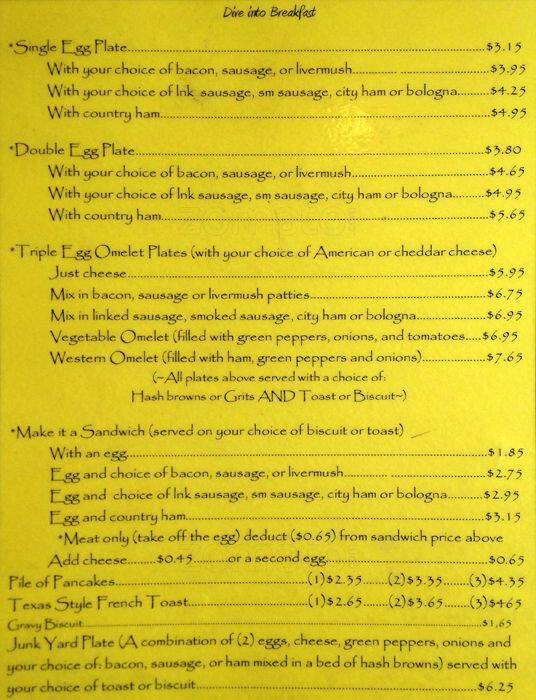 Dive into Breakfast
*Single Egg Plate........$3.15
With your choice of bacon, sausage, or livermush........$3.95
With your choice of lnk sausage, sm sausage, city ham or bologna........$4.25
With country ham........$4.95
*Double Egg Plate........$3.80
With your choice of bacon, sausage, or livermush........$4.65
With your choice of lnk sausage, sm sausage, city ham or bologna........$4.95
With country ham........$5.65
*Triple Egg Omelet Plates (with your choice of American or cheddar cheese)
Just cheese........$5.95
Mix in bacon, sausage or livermush patties........$6.75
Mix in linked sausage, smoked sausage, city ham or bologna........$6.95
Vegetable Omelet (filled with green peppers, onions, and tomatoes.....$6.95
Western Omelet (filled with ham, green peppers and onions)........$7.65
(~All plates above served with a choice of:
Hash browns or Grits AND Toast or Biscuit~)
*Make it a Sandwich (served on your choice of biscuit or toast)
With an egg........$1.85
Egg and choice of bacon, sausage, or livermush........$2.75
Egg and choice of lnk sausage, sm sausage, city ham or bologna........$2.95
Egg and country ham........$3.15
*Meat only (take off the egg) deduct ($0.65) from sandwich price above
Add cheese........$0.45........or a second egg........$0.65
Pile of Pancakes........(1)$2.35......(2)$3.35......(3)$4.35
Texas Style French Toast........(1)$2.65......(2)$3.65......(3)$465
Gravy Biscuit........$1.65
Junk Yard Plate (A combination of (2) eggs, cheese, green peppers, onions and
your choice of: bacon, sausage, or ham mixed in a bed of hash browns) served with
your choice of toast or biscuit........$6.25